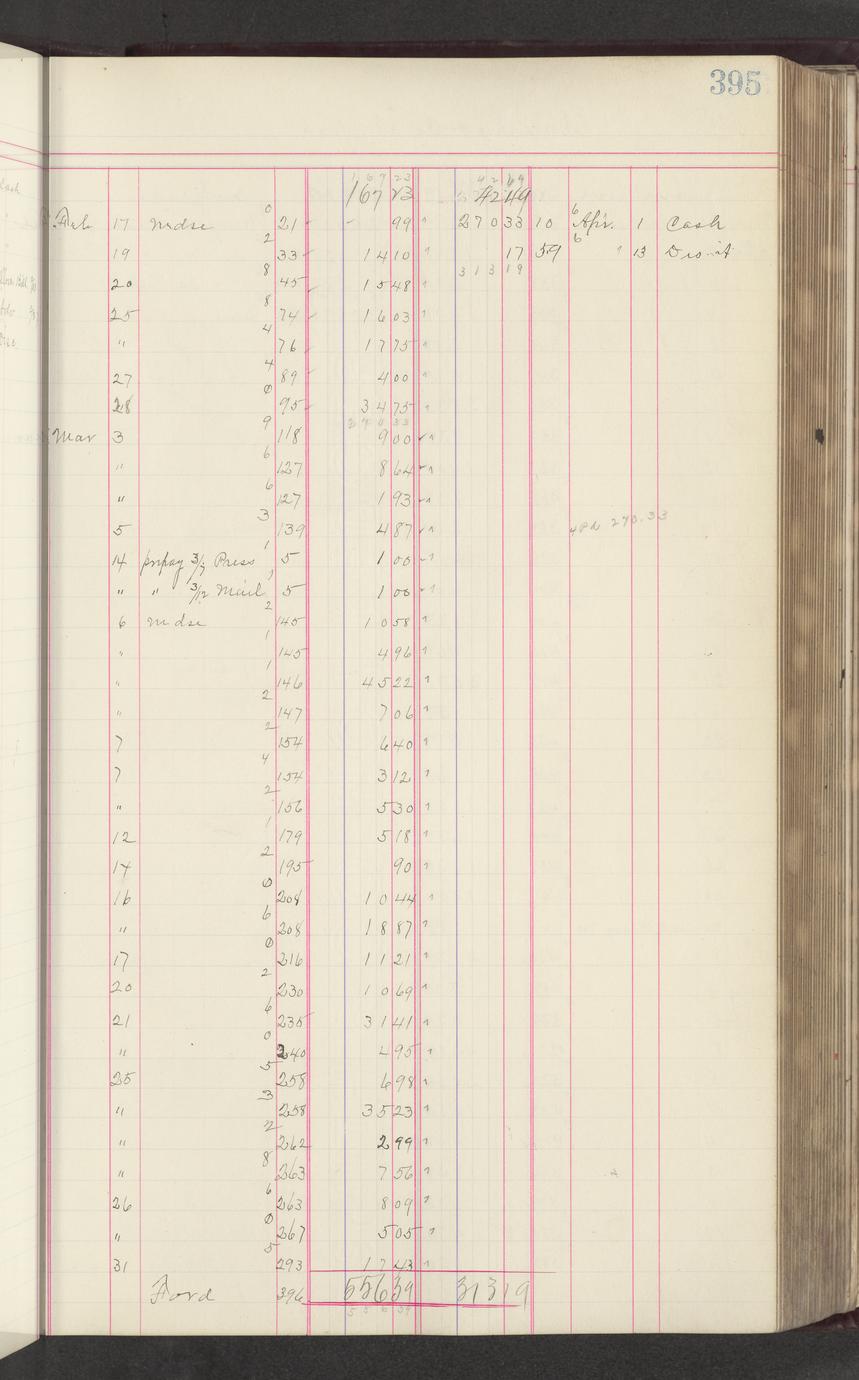 395
167 23 42 69
167 23 42 49
Feb 17 mdse 0 21 99 270 33 10 6 Apr. 1 Cash
19 2 33 14 10 17 59 6 " 13 Dis
313 19
20 8 45 15 48
25 8 74 16 03
" 4 76 17 75
27 4 89 4 00
28 0 95 34 75
270 33
Mar 3 9 118 9 00
" 6 127 8 64
" 6 127 1 93
5 3 139 4 87 Pd 270.33
14 prepay 3/7 Press 1 5 1 00
" " 3/12 Mail 1 5 1 00
6 mdse 2 145 10 58
" 1 145 4 96
" 1 146 45 22
" 2 147 7 06
7 2 154 6 40
7 4 154 3 12
" 2 156 5 30
12 1 179 5 18
14 2 195 90
16 0 208 10 44
" 6 208 18 87
17 0 216 11 21
20 2 230 10 69
21 6 235 31 41
" 0 240 4 95
25 5 258 6 98
" 3 258 35 23
" 2 262 2 99
" 8 263 7 56
26 6 263 8 09
" 0 267 5 05
31 5 293 17 43
Ford 396 556 39 313 19
556 39